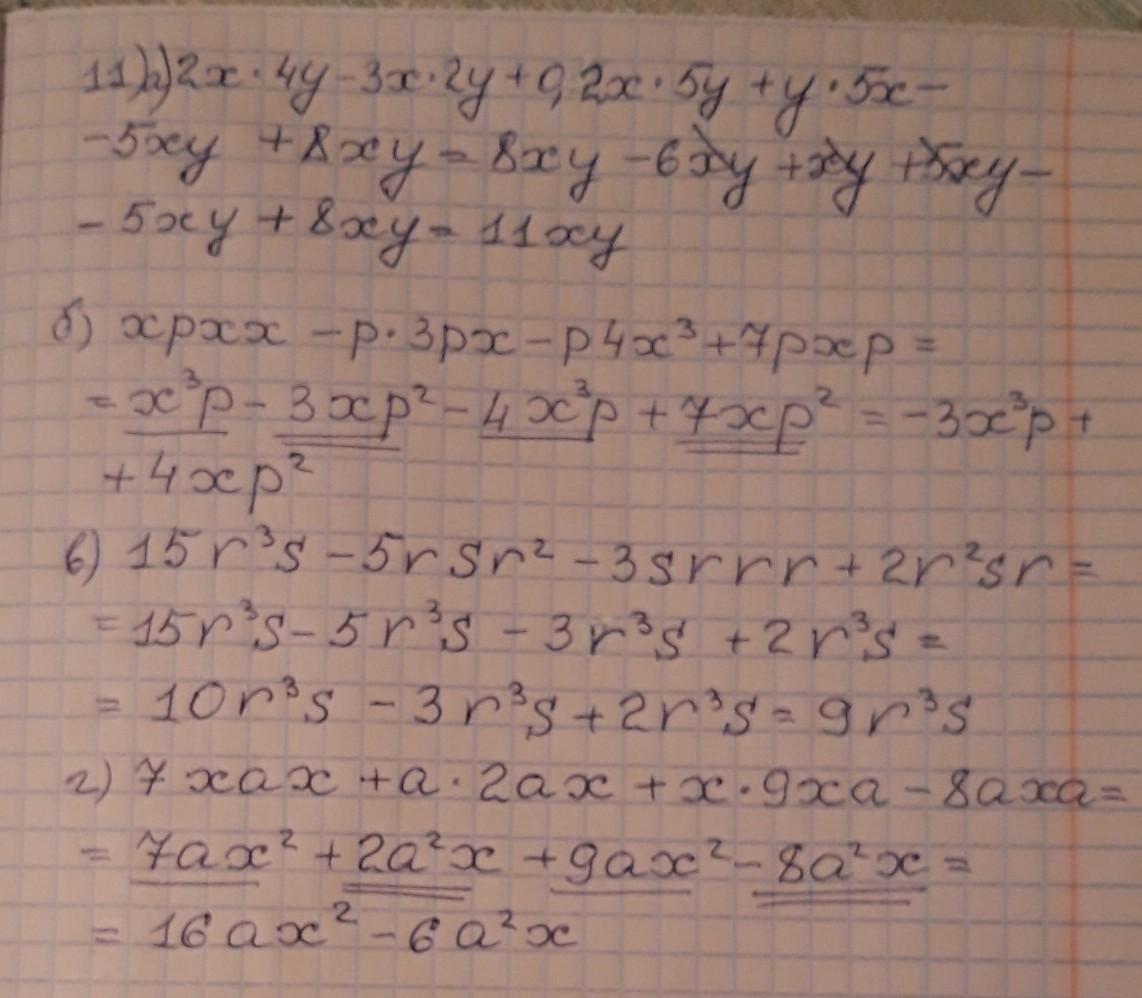 11)а) 2x · 4y - 3x · 2y + 0,2x · 5y + y · 5x -
- 5xy + 8xy = 8xy - 6xy + xy + 5xy -
- 5xy + 8xy = 11xy
б) xpxx - p · 3px - p4x³ + 7pxp =
= x³p - 3xp² - 4x³p + 7xp² = -3x³p +
+ 4xp²
в) 15r³s - 5rsr² - 3srrr + 2r²sr =
= 15r³s - 5r³s - 3r³s + 2r³s =
= 10r³s - 3r³s + 2r³s = 9r³s
г) 7xax + a · 2ax + x · 9xa - 8axa =
= 7ax² + 2a²x + 9ax² - 8a²x =
= 16ax² - 6a²x